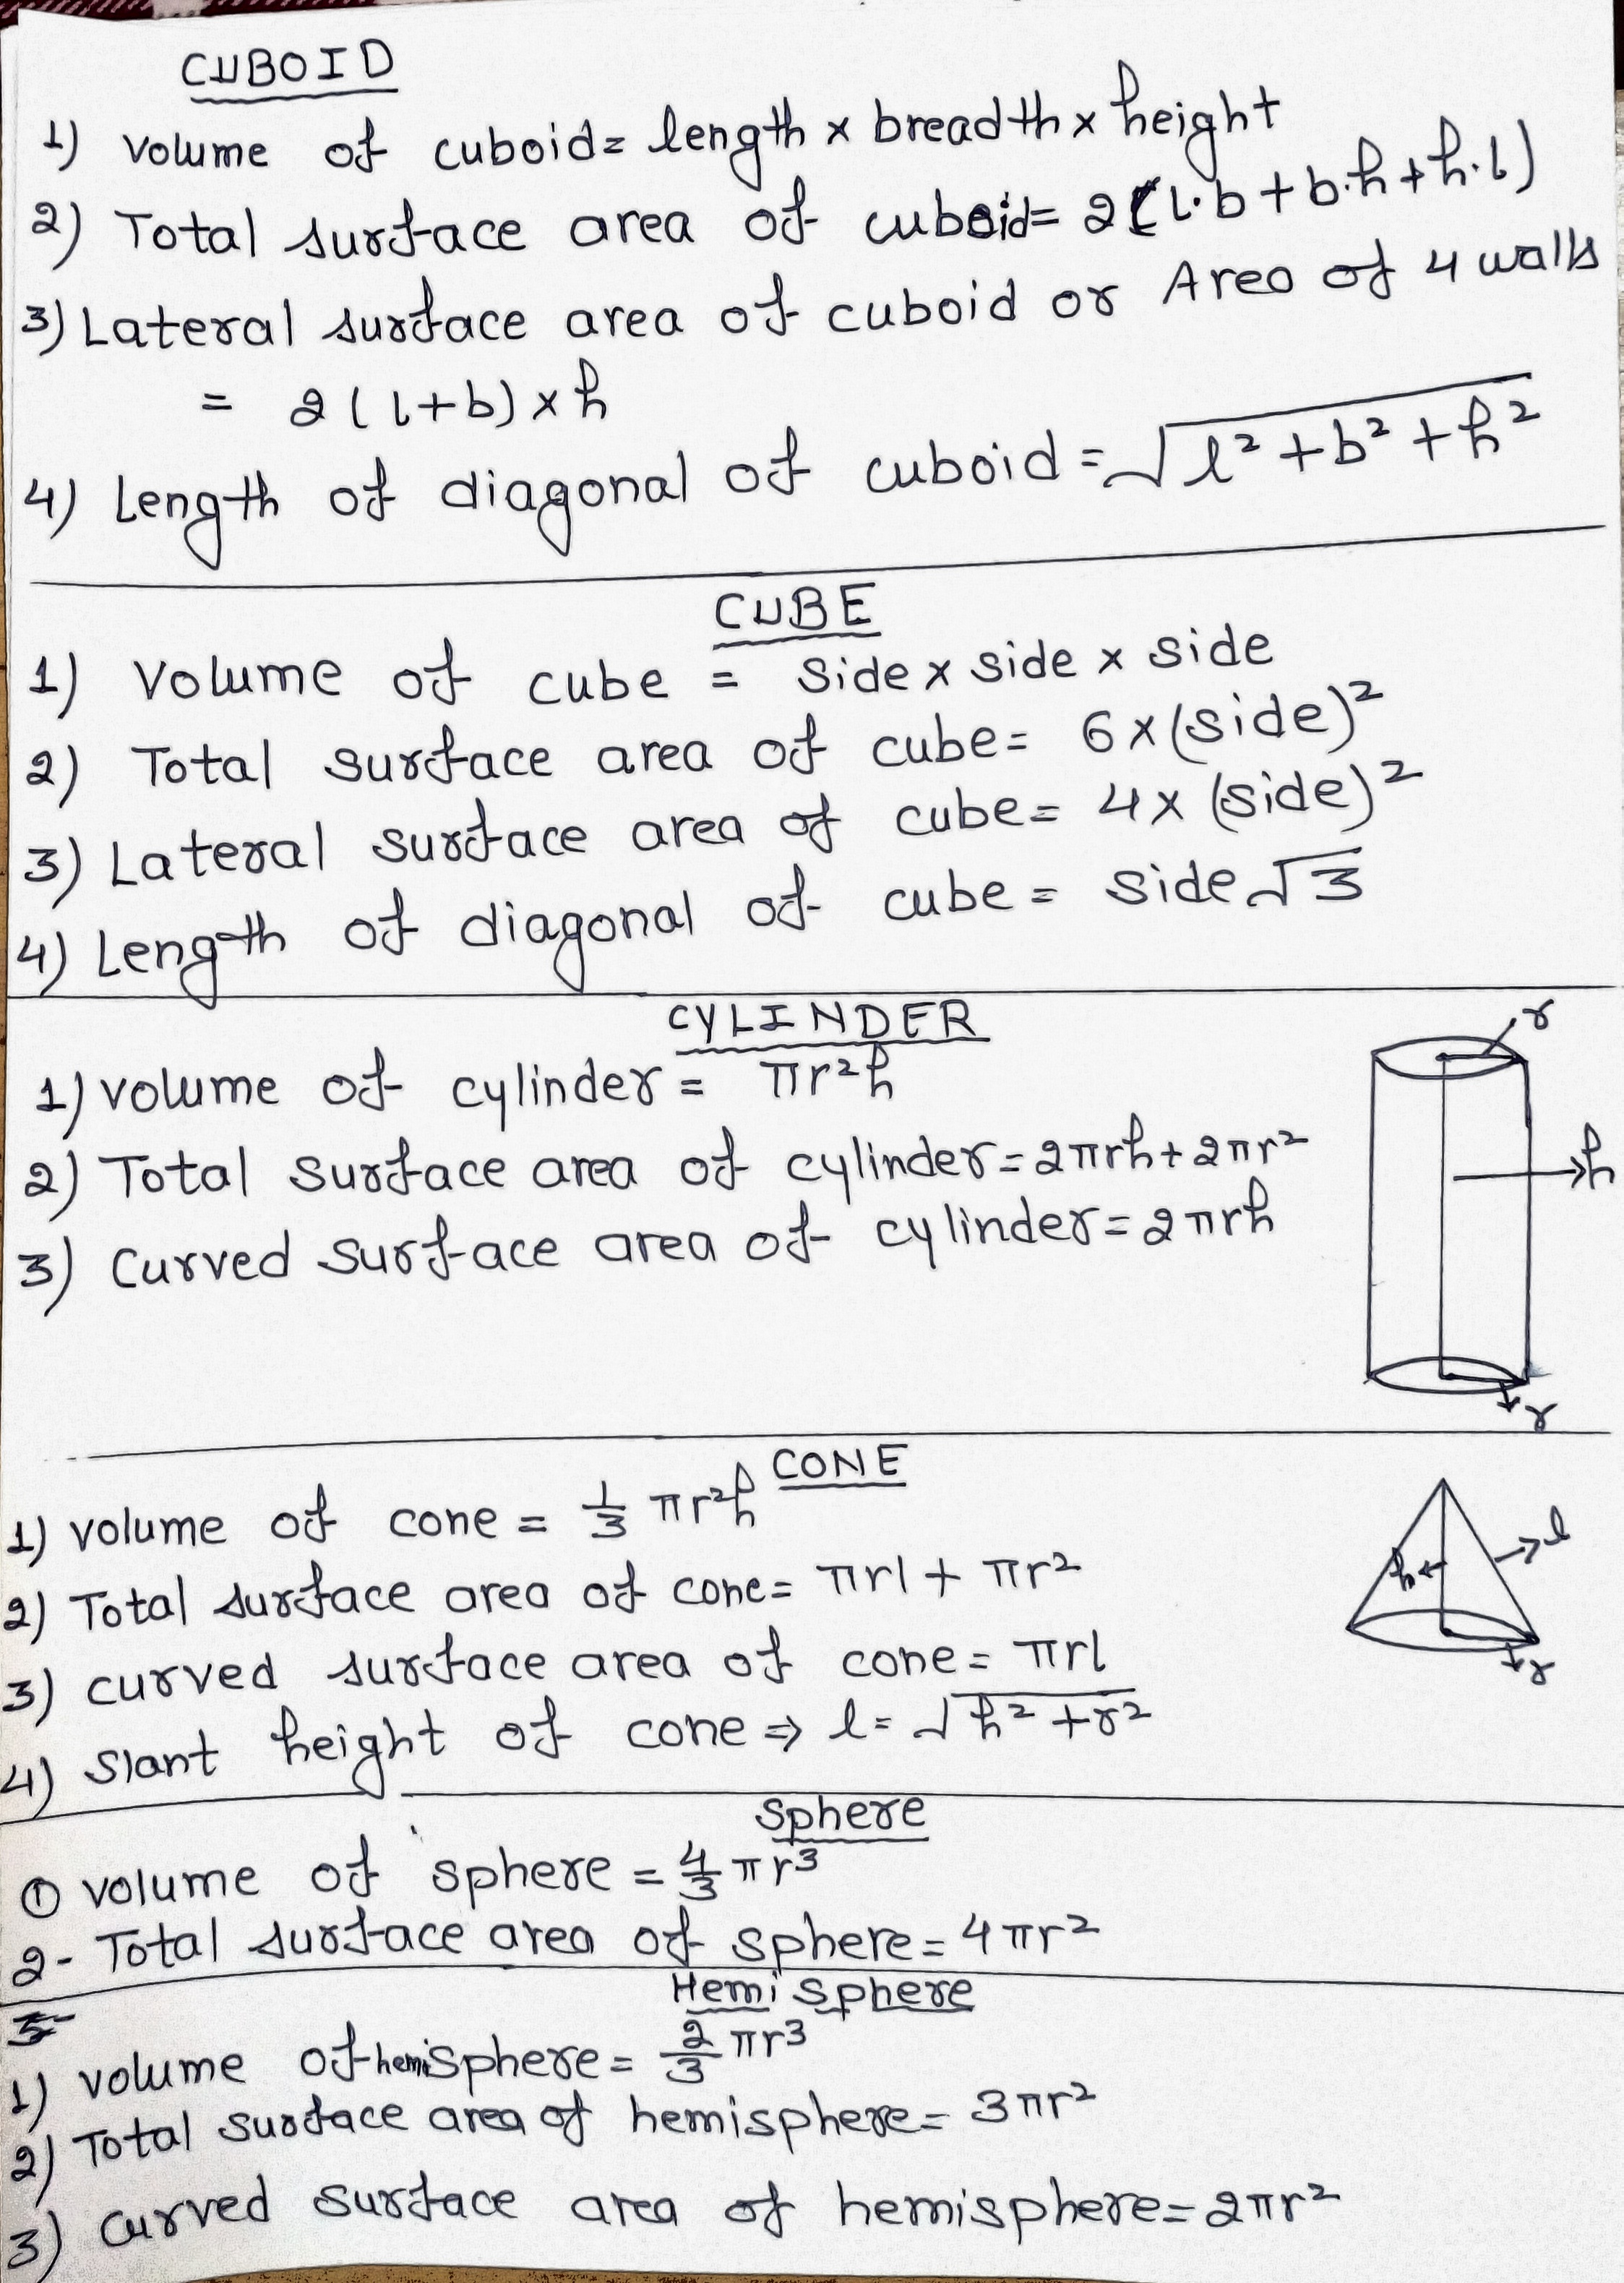 CUBOID
1) Volume of cuboid= length x breadth x height
2) Total surface area of cuboid= 2(l.b+b.h+h.l)
3) Lateral surface area of cuboid or Area of 4 walls
= 2(l+b) x h
4) Length of diagonal of cuboid = √l²+b²+h²
CUBE
1) Volume of cube = Side x side x side
2) Total surface area of cube= 6x(side)²
3) Lateral surface area of cube= 4x (side)²
4) Length of diagonal of cube = side√3
CYLINDER
r
1) volume of cylinder = πr²h
2) Total surface area of cylinder=2πrh+2πr²
h
3) Curved surface area of cylinder=2πrh
r
CONE
1) volume of cone = 1/3 πr²h
l
h
2) Total surface area of cone= πrl + πr²
3) curved surface area of cone= πrl
r
4) Slant height of cone ⇒ l= √h²+r²
Sphere
① volume of sphere = 4/3 πr³
2- Total surface area of sphere=4πr²
Hemi sphere
1) volume of hemisphere = 2/3 πr³
2) Total surface area of hemisphere= 3πr²
3) curved surface area of hemisphere=2πr²